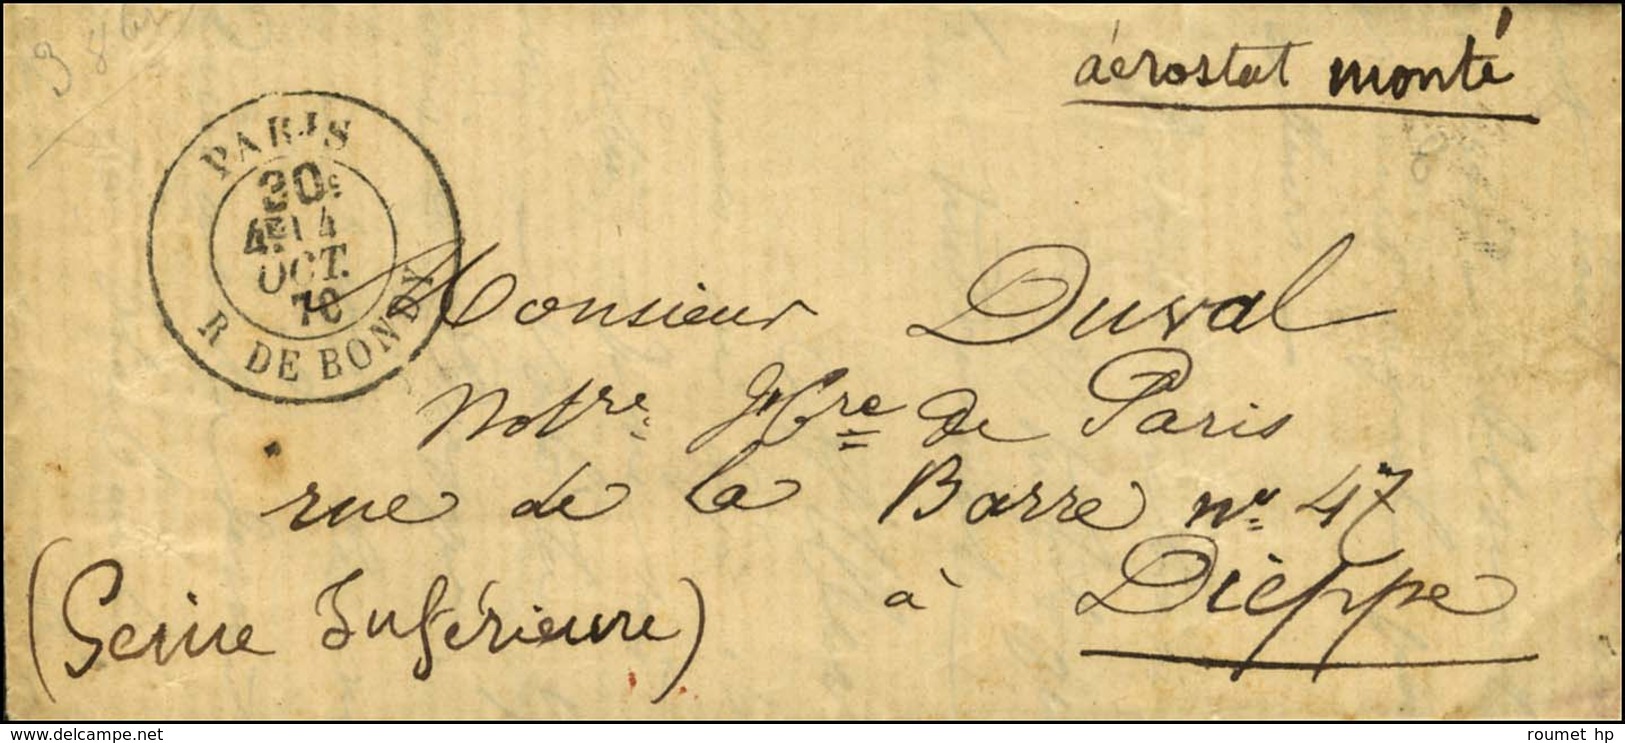 aérostat monté
PARIS
30c
4E 14
OCT.
70
R. DE BONDY
Monsieur Duval
Notre hre de Paris
rue de la Barre no 47
à Dieppe
(Seine Inférieure)
www.delcampe.net
roumet hp